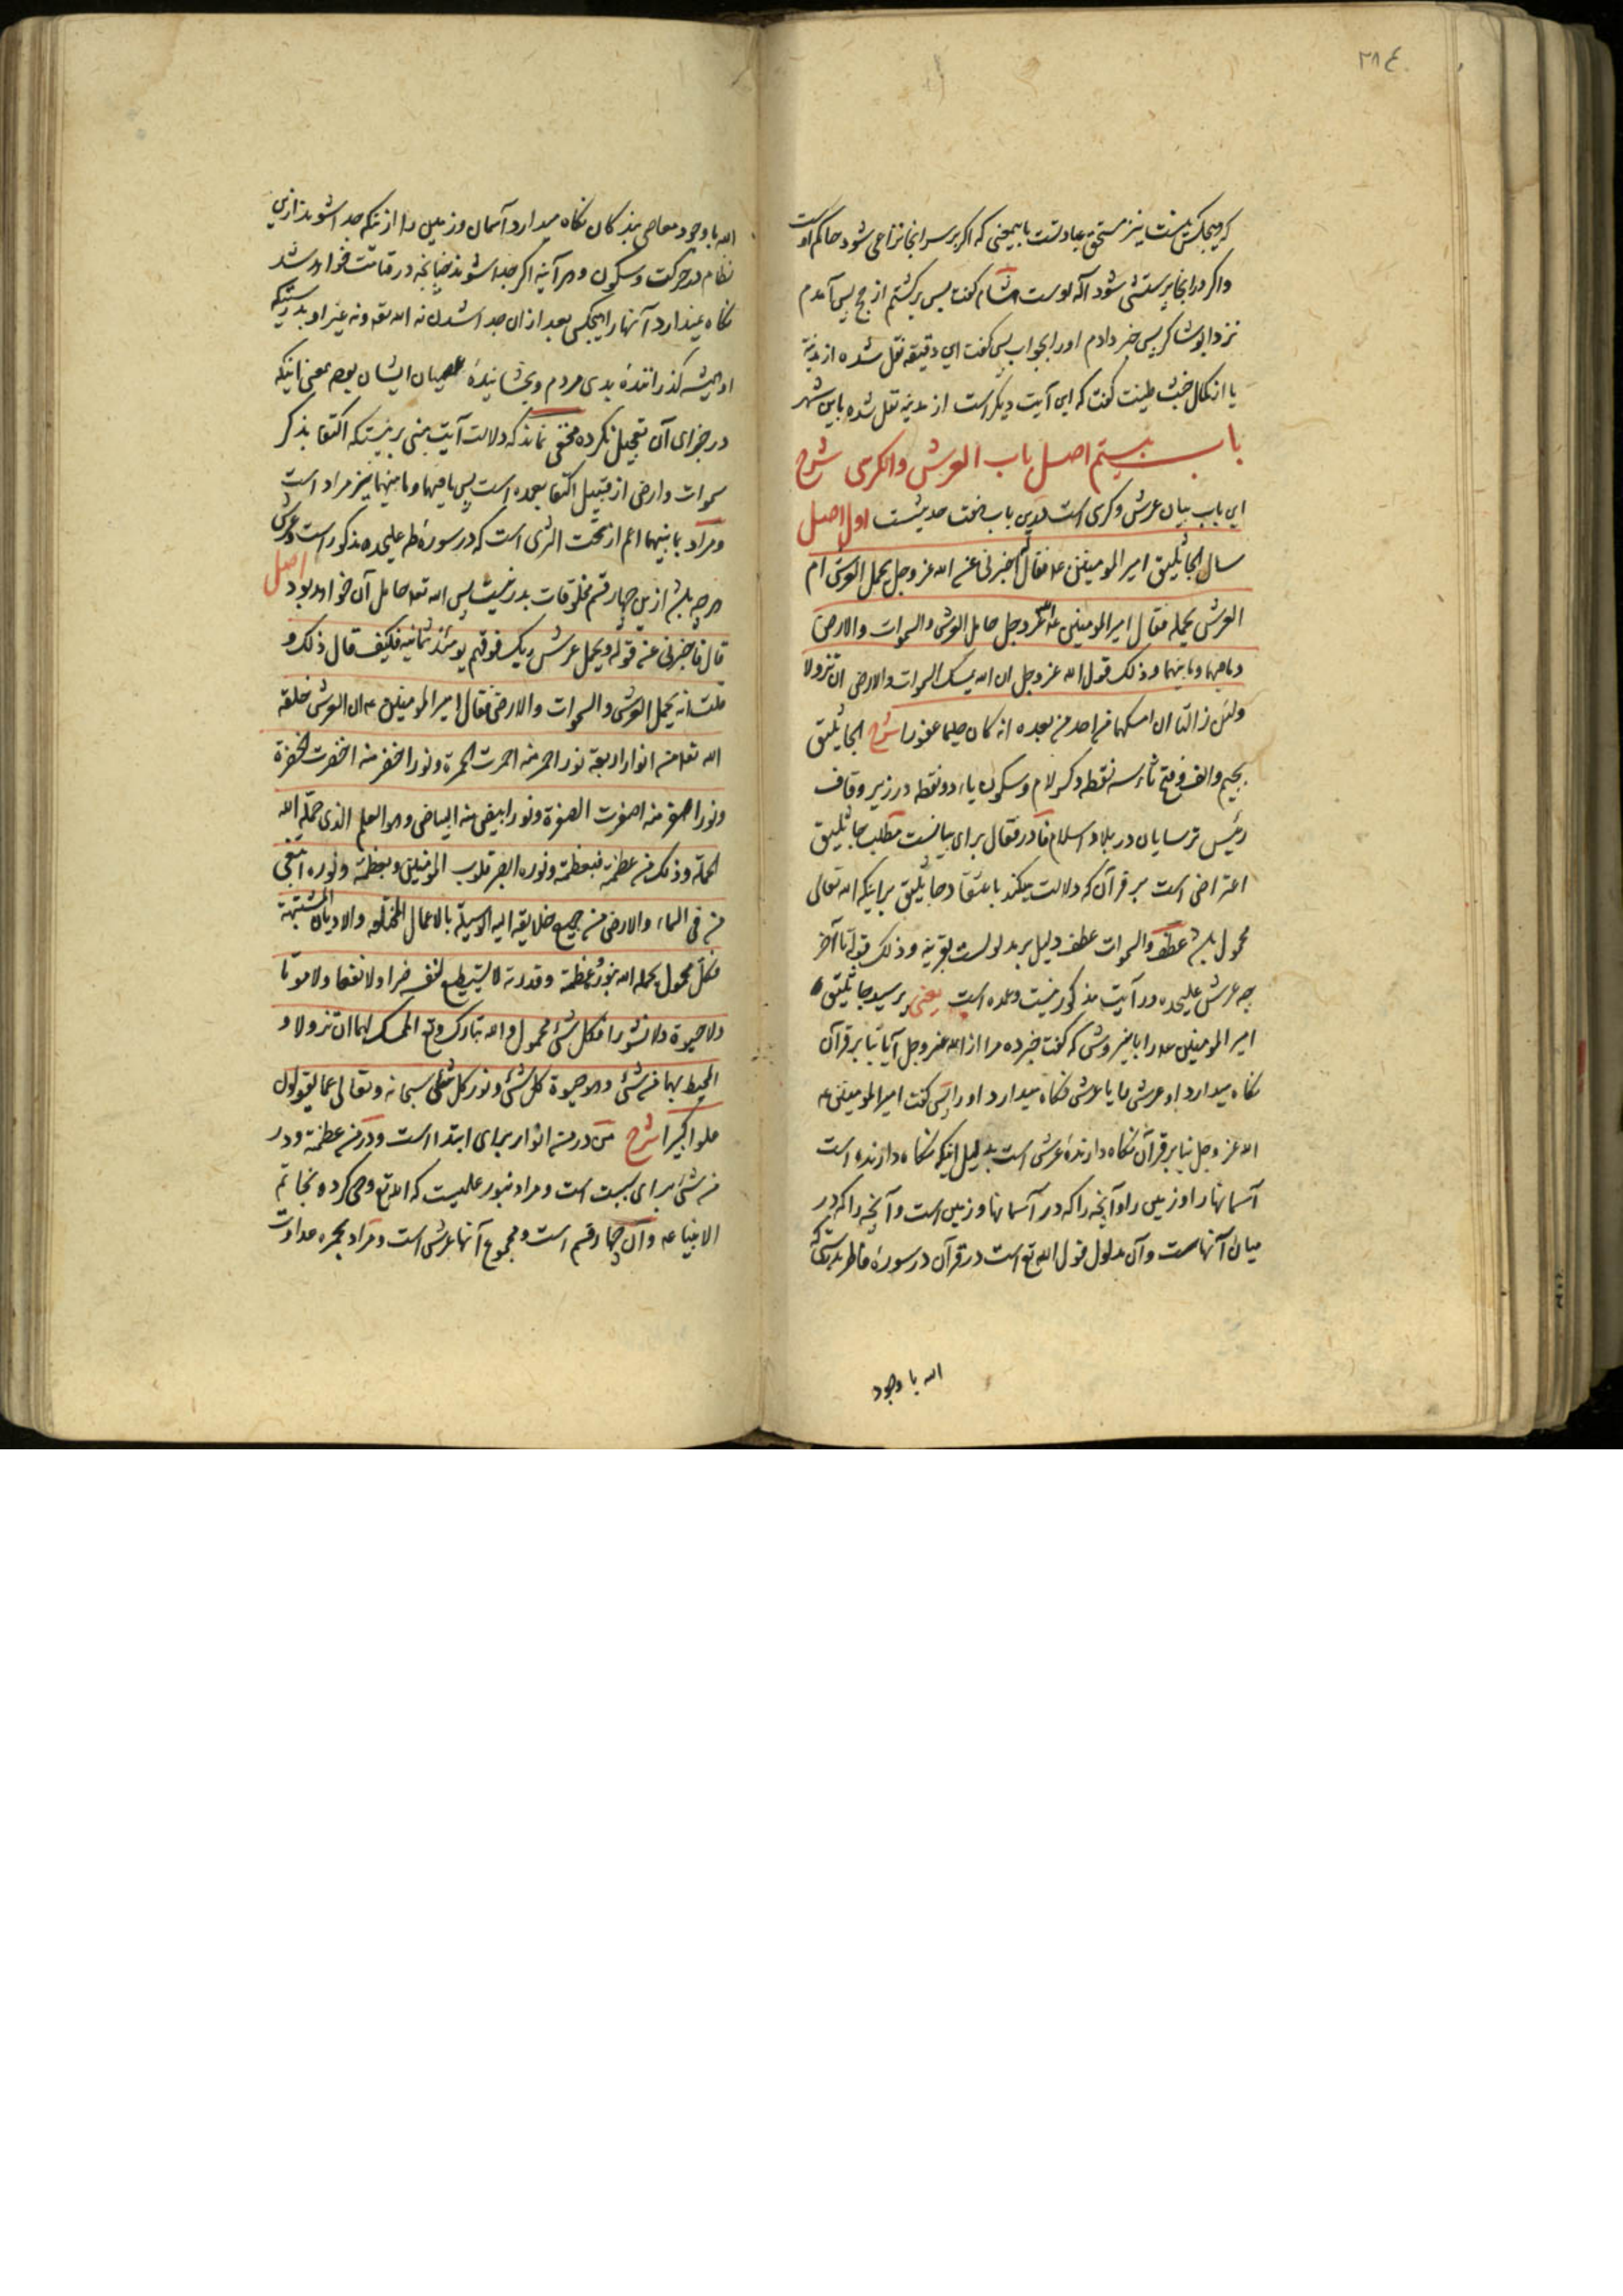 ٣٨٤
که هیچکس نیست نیز مستحق عبادتست باینمعنی که اگر بر سر اینجا نزاعی شود حاکم اوست
و اگر در اینجا پرستشی شود آله اوست هشام گفت پس برگشتم از حج پس آمدم
نزد ابو شاکر پس خبر دادم او را بجواب پس گفت این دقیقه نقل شده از مدینه
یا از کمال خبث طینت گفت که این آیت دیگر است از مدینه نقل شده باین شهر
باب بیستم اصل باب العرش والکرسی شرح
این باب بیان عرش و کرسی است درین باب هفت حدیثست اول اصل
سال الجاثلیق امیر المومنین ع فقال اخبرنی عن الله عز وجل یحمل العرش ام
العرش یحمله فقال امیر المومنین ع الله عز وجل حامل العرش والسموات والارض
وما فیهما وما بینهما و ذلک قول الله عز وجل ان الله یمسک السموات والارض ان تزولا
ولئن زالتا ان امسکهما من احد من بعده انه کان حلیما غفورا شرح الجاثلیق
بجیم و الف و فتح ثاء سه نقطه و کسر لام و سکون یاء دو نقطه در زیر و قاف
رئیس ترسایان در بلاد اسلام فا در فقال برای بیانست مطلب جاثلیق
اعتراض است بر قرآن که دلالت میکند باعتقاد جاثلیق بر اینکه الله تعالی
محمول باشد عطف والسموات عطف دلیل بر مدلولست بقرینه و ذلک قوله تا آخر
چه عرش علیحده در آیت مذکور نیست و عمده است یعنی پرسید جاثلیق
امیر المومنین ع را باینروش که گفت خبر ده مرا از الله عز وجل آیا بنا بر قرآن
نگاه میدارد او عرش را یا عرش نگاه میدارد او را پس گفت امیر المومنین ع
الله عز وجل بنا بر قرآن نگاه دارندهٔ عرش است بدلیل اینکه نگاه دارنده است
آسمانها را و زمین را و آنچه را که در آسمانها و زمین است و آنچه را که در
میان آنهاست و آن مدلول قول الله تع است در قرآن در سورهٔ فاطر بدرستیکه
الله با وجود
الله با وجود معاصی بندگان نگاه میدارد آسمان و زمین را از اینکه جدا شوند ازین
نظام در حرکت و سکون و هر آینه اگر جدا شوند چنانچه در قیامت خواهد شد
نگاه نمیدارد آنها را هیچکس بعد از ان جدا شدن نه الله تع و نه غیر او بدرستیکه
او همیشه گذرانندهٔ بدی مردم و بخشایندهٔ عصیان ایشان بوده بمعنی اینکه
در جزای آن تعجیل نکرده مخفی نماند که دلالت آیت مبنی بر اینستکه اکتفا بذکر
سموات و ارض از قبیل اکتفا بعمده است پس ما فیهما و ما بینهما نیز مراد است
و مراد بما بینهما اعم از تحت الثری است که در سورهٔ طه علیحده مذکور است و عرش
هر چه باشد ازین چهار قسم مخلوقات بدر نیست پس الله تع حامل آن خواهد بود اصل
قال فاخبرنی عن قوله ویحمل عرش ربک فوقهم یومئذ ثمانیة فکیف قال ذلک و
قلت انه یحمل العرش والسموات والارض فقال امیر المومنین ع ان العرش خلقه
الله تع من انوار اربعة نور احمر منه احمرت الحمرة ونور اخضر منه اخضرت الخضرة
ونور اصفر منه اصفرت الصفرة ونور ابیض منه البیاض وهو العلم الذی حمله الله
الحملة وذلک من عظمته فبعظمته ونوره ابصر قلوب المومنین وبعظمته ونوره ابتغی
من فی السماء والارض من جمیع خلایقه الیه الوسیلة بالاعمال المختلفة والادیان المشتبهة
فکل محمول یحمله الله بنوره وعظمته وقدرته لا یستطیع لنفسه ضرا ولا نفعا ولا موتا
ولا حیوة ولا نشورا فکل شئ محمول والله تبارک وتع الممسک لهما ان تزولا و
المحیط بهما من شئ وهو حیوة کل شئ ونور کل شئ سبحانه وتعالی عما یقولون
علوا کبیرا شرح من در من انوار برای ابتداء است و در من عظمته و در
من شئ برای سببست است و مراد بنور علمیست که الله تع وحی کرده بخاتم
الانبیا ع و آن چهار قسم است و مجموع آنها عرش است و مراد بحمره عداوت